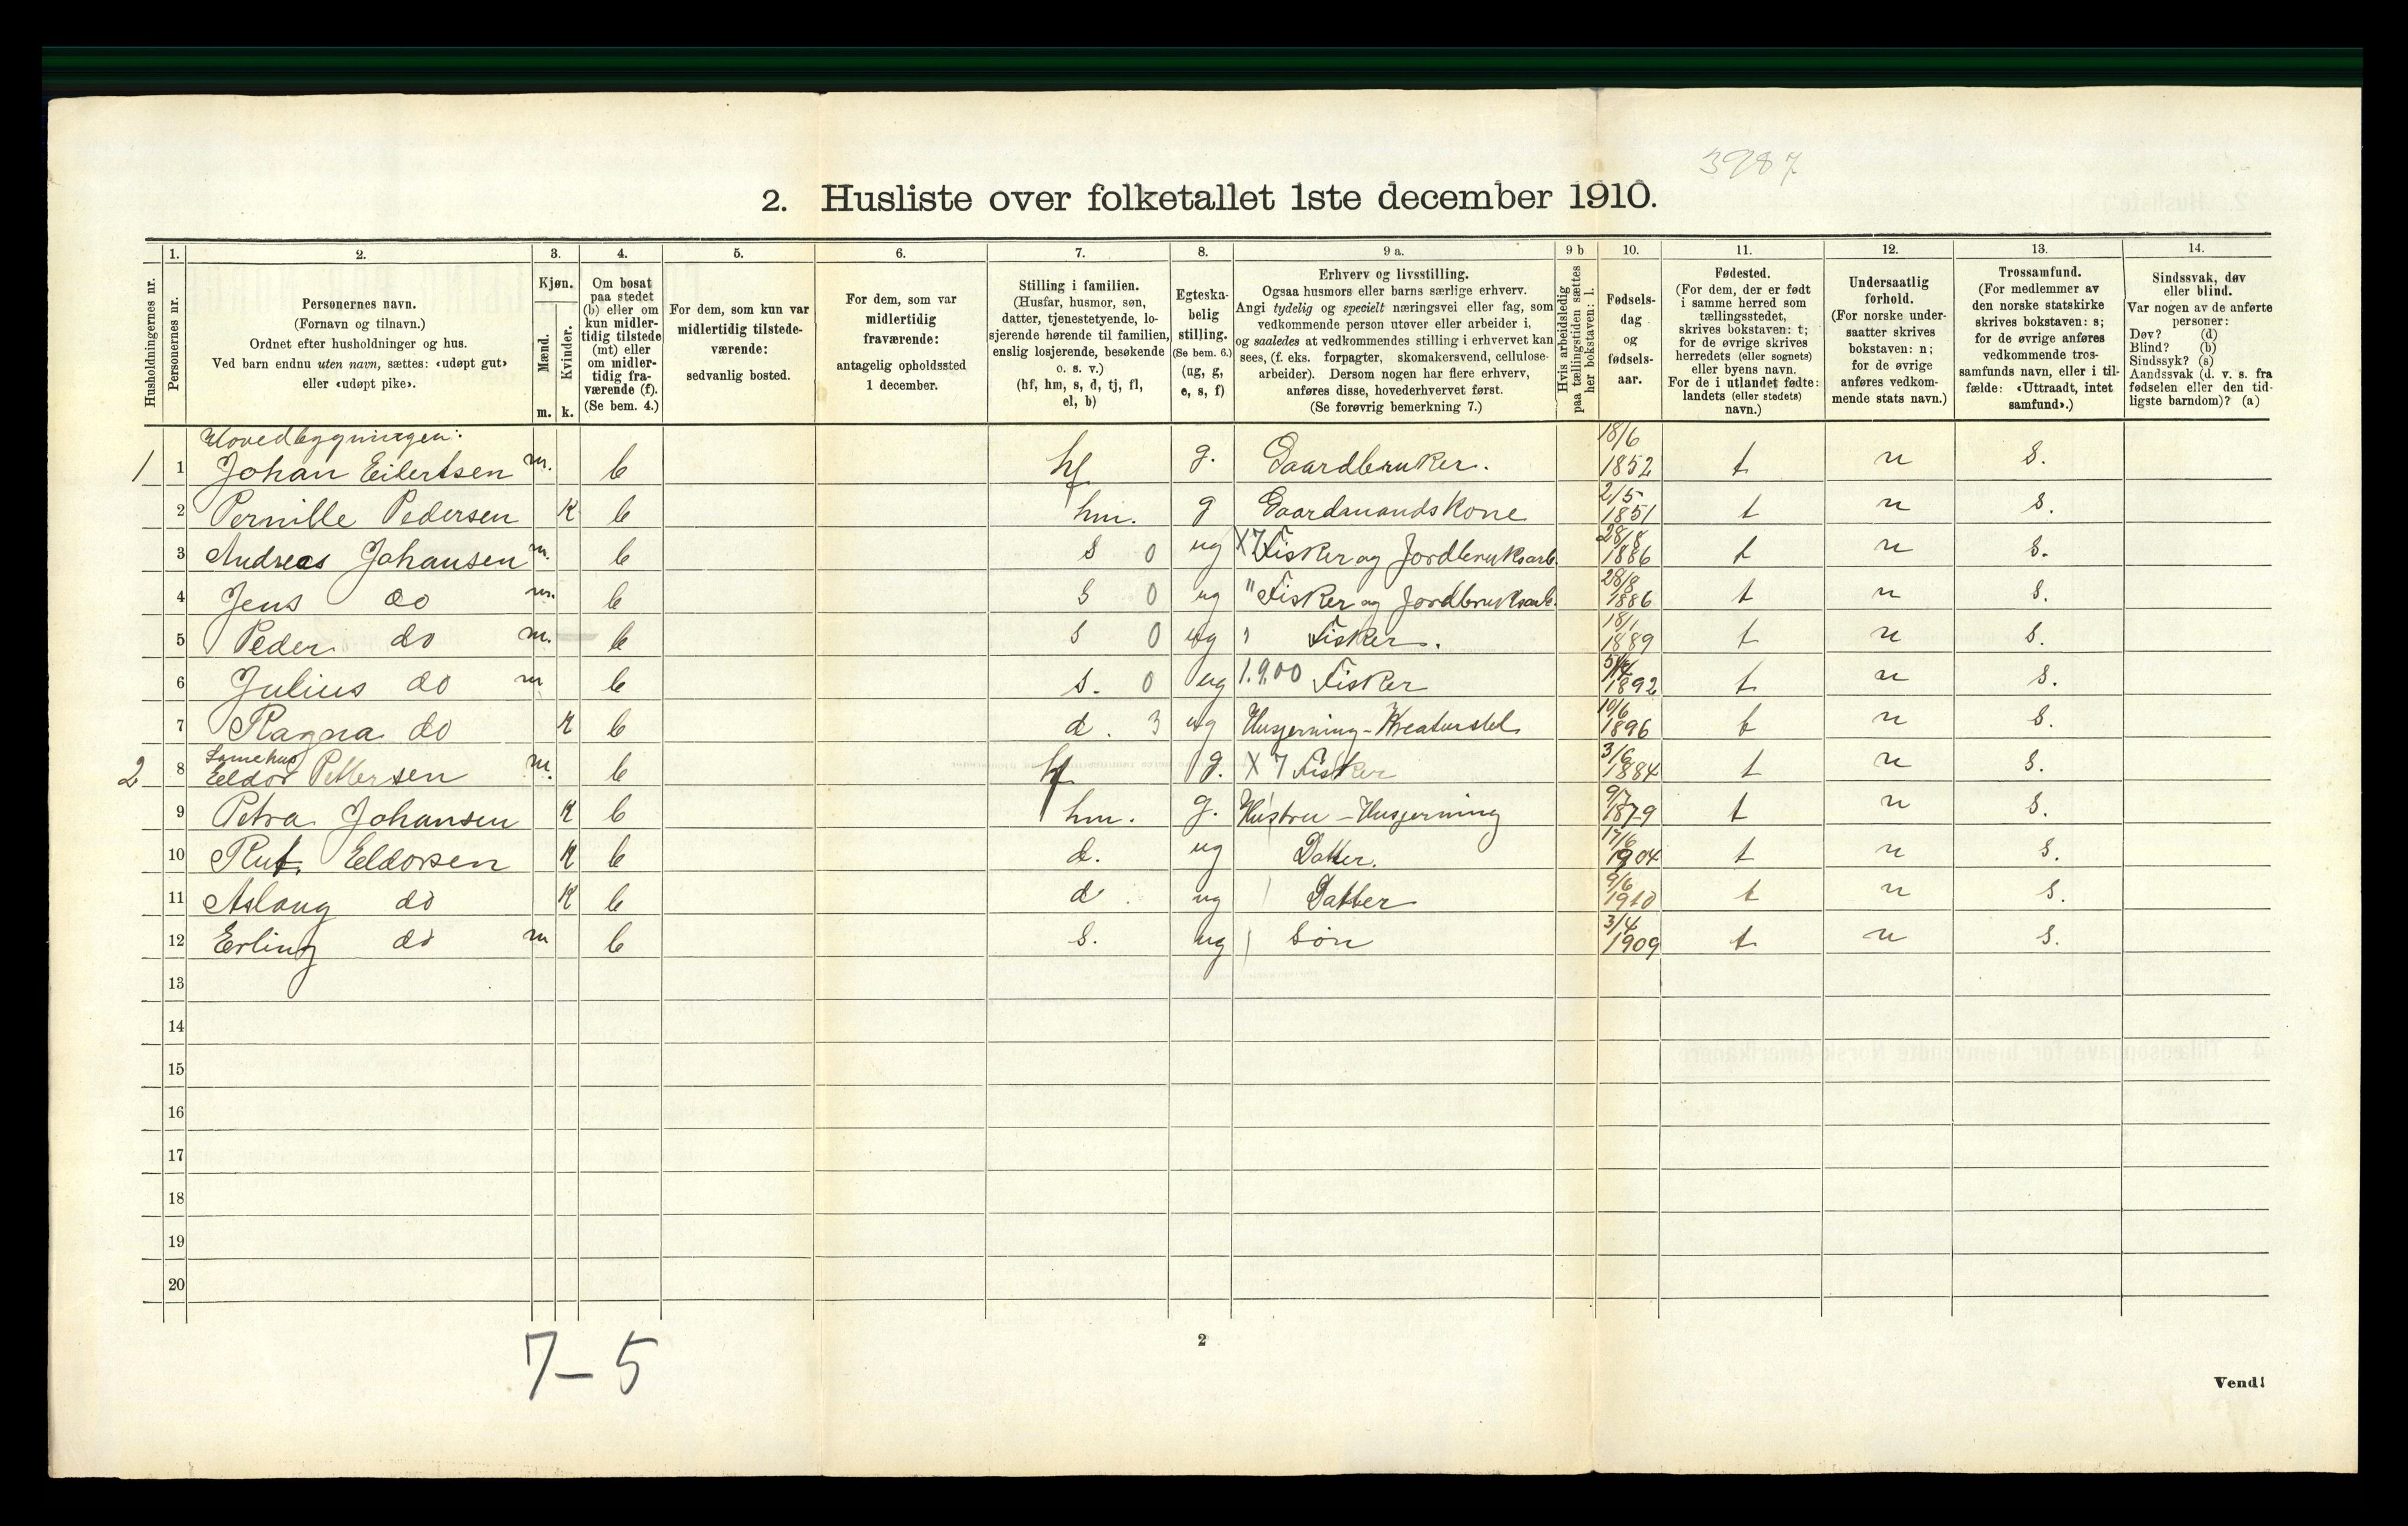 3987
2. Husliste over folketallet 1ste december 1910.
Husholdningernes nr.
1.
Personernes nr.
2.
Personernes navn.
(Fornavn og tilnavn.)
Ordnet efter husholdninger og hus.
Ved barn endnu uten navn, sættes: «udøpt gut»
eller «udøpt pike».
3.
Kjøn.
Mænd.
Kvinder.
m. k.
4.
Om bosat
paa stedet
(b) eller om
kun midler-
tidig tilstede
(mt) eller
om midler-
tidig fra-
værende (f).
(Se bem. 4.)
5.
For dem, som kun var
midlertidig tilstede-
værende:
sedvanlig bosted.
6.
For dem, som var
midlertidig
fraværende:
antagelig opholdssted
1 december.
7.
Stilling i familien.
(Husfar, husmor, søn,
datter, tjenestetyende, lo-
sjerende hørende til familien,
enslig losjerende, besøkende
o. s. v.)
(hf, hm, s, d, tj, fl,
el, b)
8.
Egteska-
belig
stilling.
(Se bem. 6.)
(ug, g,
e, s, f)
9 a.
Erhverv og livsstilling.
Ogsaa husmors eller barns særlige erhverv.
Angi tydelig og specielt næringsvei eller fag, som
vedkommende person utøver eller arbeider i,
og saaledes at vedkommendes stilling i erhvervet kan
sees, (f. eks. forpagter, skomakersvend, cellulose-
arbeider). Dersom nogen har flere erhverv,
anføres disse, hovederhvervet først.
(Se forøvrig bemerkning 7.)
9 b
Hvis arbeidsledig
paa tællingstiden sættes
her bokstaven: l.
10.
Fødsels-
dag
og
fødsels-
aar.
11.
Fødested.
(For dem, der er født
i samme herred som
tællingsstedet,
skrives bokstaven: t;
for de øvrige skrives
herredets (eller sognets)
eller byens navn.
For de i utlandet fødte:
landets (eller stedets)
navn.)
12.
Undersaatlig
forhold.
(For norske under-
saatter skrives
bokstaven: n;
for de øvrige
anføres vedkom-
mende stats navn.)
13.
Trossamfund.
(For medlemmer av
den norske statskirke
skrives bokstaven: s;
for de øvrige anføres
vedkommende tros-
samfunds navn, eller i til-
fælde: «Uttraadt, intet
samfund».)
14.
Sindssvak, døv
eller blind.
Var nogen av de anførte
personer:
Døv? (d)
Blind? (b)
Sindssyk? (s)
Aandssvak (d. v. s. fra
fødselen eller den tid-
ligste barndom)? (a)
Hovedbygningen:
1 1 Johan Eilertsen m. b hf g. Gaardbruker. 18/6 1852 t n s.
2 Pernille Pedersen K b hm. g Gaardmandskone 2/5 1851 t n s.
3 Andreas Johansen m. b s 0 ug X7 Fisker og Jordbruksarb. 28/8 1886 t n s.
4 Jens do m. b s 0 ug " Fisker og Jordbruksarb. 28/8 1886 t n s.
5 Peder do m. b s 0 ug " Fisker. 18/1 1889 t n s.
6 Julius do m b s. 0 ug 1.9.00 Fisker 1892 t n s.
7 Ragna do K b d. 3 ug Husgjerning - Kreaturstel 10/6 1896 t n s.
Samehus
2 8 Eldor Pettersen m. b hf g. X 7 Fisker 3/6 1884 t n s.
9 Petra Johansen K b hm. g. Hustru - Husgjerning 9/7 1879 t n s.
10 Rut Eldorsen K b d. ug Datter. 17/6 1904 t n s.
11 Aslaug do K b d ug Datter 9/6 1910 t n s.
12 Erling do m b s. ug Søn 3/4 1909 t n s.
13
14
15
16
17
18
19
20
7-5
2
Vend!